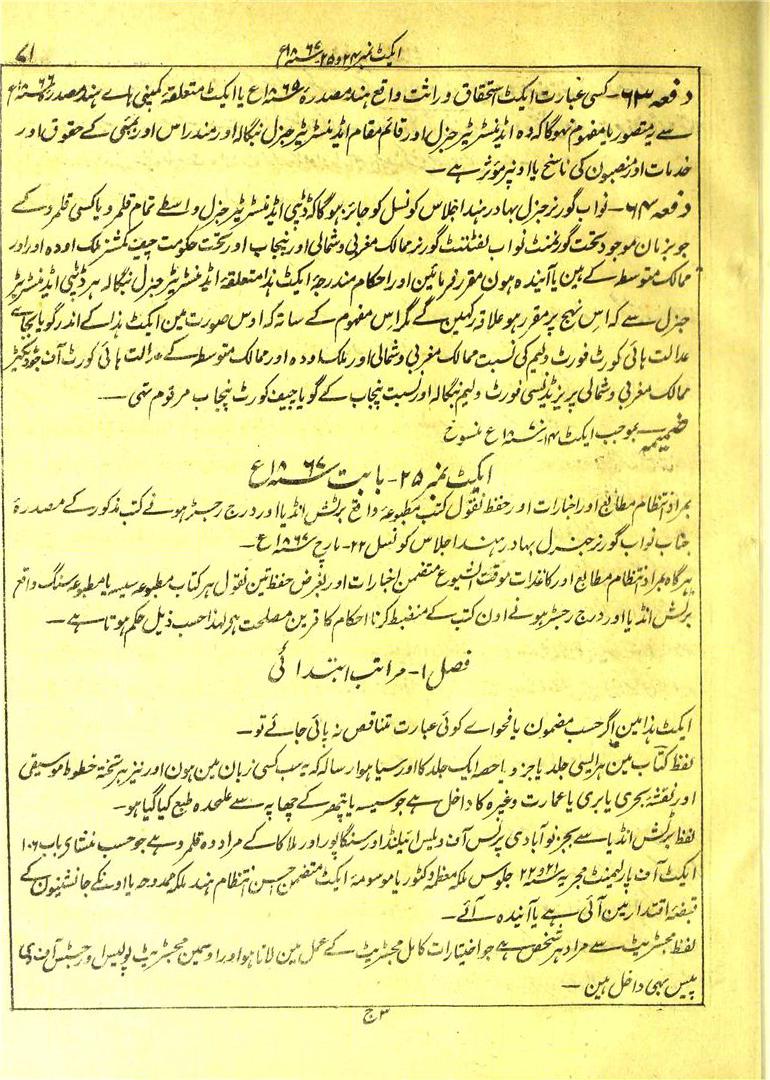 ایکٹ نمبر ۲۴ و ۲۵ سنہ ۱۸۶۷ع
۷۱
دفعہ ۶۳ - کسی عبارت ایکٹ استحقاق وراثت واقع ہند مصدرہ سنہ ۱۸۶۵ع یا ایکٹ متعلقہ کمپنی ہاے ہند مصدرہ سنہ ۱۸۶۶ع
سے یہ متصور یا مفہوم نہوگا کہ وہ اڈمنسٹریٹر جنرل اور قائم مقام اڈمنسٹریٹر جنرل بنگالہ اور مندراس اور بمبئی کے حقوق اور
خدمات اور منصبون کی ناسخ یا اونپر مؤثر ہے ۔
دفعہ ۶۴ - نواب گورنر جنرل بہادر ہند اجلاس کونسل کو جائز ہوگا کہ ڈپٹی اڈمنسٹریٹر جنرل واسطے تمام قلمرو یا کسی قلمرو کے
جو بزمان موجود تحت گورنمنٹ نواب لفٹنٹ گورنر ممالک مغربی و شمالی اور پنجاب اور تحت حکومت چیف کمشنر ملک اودہ اور اور
ممالک متوسطہ کے ہین یا آیندہ ہون مقرر فرمائین اور احکام مندرجہ ایکٹ ہذا متعلقہ اڈمنسٹریٹر جنرل بنگالہ ہر ڈپٹی اڈمنسٹریٹر
جنرل سے کہ اس نہج پر مقرر ہو علاقہ رکہین گے مگر اس مفہوم کے ساتہ کہ اوس صورت مین ایکٹ ہذا کے اندر گویا بجاے
عدالت ہائی کورٹ فورٹ ولیم کی نسبت ممالک مغربی و شمالی اور ملک اودہ اور ممالک متوسطہ کے عدالت ہائی کورٹ آف جوڈیکیچر
ممالک مغربی و شمالی پریزیڈنسی فورٹ ولیم بنگالہ اور نسبت پنجاب کے گویا چیف کورٹ پنجاب مرقوم تہی ۔
ضمیمہ بموجب ایکٹ ۱۴ سنہ ۱۸۷۰ع منسوخ
ایکٹ نمبر ۲۵ - بابت سنہ ۱۸۶۷ع
بمراد انتظام مطابع اور اخبارات اور حفظ نقول کتب مطبوعہ واقع برٹش انڈیا اور درج رجسٹر ہونے کتب مذکور کے مصدرۂ
جناب نواب گورنر جنرل بہادر ہند اجلاس کونسل ۲۲ - مارچ سنہ ۱۸۶۷ع ۔
ہرگاہ بمراد انتظام مطابع اور کاغذات موقت الشیوع متضمن اخبارات اور بغرض حفظ تین نقول ہر کتاب مطبوعہ سیسہ یا مطبوعہ سنگ واقع
برٹش انڈیا اور درج رجسٹر ہونے اون کتب کے منضبط کرنا احکام کا قرین مصلحت ہی لہذا حسب ذیل حکم ہوتا ہے ۔
فصل ۱ - مراتب ابتدائی
ایکٹ ہذا مین اگر حسب مضمون یا فحواے کوئی عبارت تناقص نہ پائی جائے تو ۔
لفظ کتاب مین ہر ایسی جلد یا جزو یا حصہ ایک جلد کا اور سیا ہوا رسالہ کہ یہ سب کسی زبان مین ہون اور نیز ہر تختہ خطوط موسیقی
اور نقشۂ بحری یا بری یا عمارت وغیرہ کا داخل ہے جو سیسہ یا پتھر کے چھاپہ سے علحدہ طبع کیا گیا ہو ۔
لفظ برٹش انڈیا سے بجز نوآبادی پرنس آف ویلس ایلنڈ اور سنگاپور اور ملاکا کے مراد وہ قلمرو ہے جو حسب منشاے باب ۱۰۶
ایکٹ آف پارلیمنٹ مجریہ سنہ ۲۱ و ۲۲ جلوس ملکہ معظمہ وکٹوریا موسومہ ایکٹ متضمن احسن انتظام ہند ملکہ ممدوحہ یا اونکے جانشینون کے
قبضۂ اقتدار مین آئی ہے یا آیندہ آئے ۔
لفظ مجسٹریٹ سے مراد ہر شخص ہے جو اختیارات کامل مجسٹریٹ کے عمل مین لاتا ہو اور اوسمین مجسٹریٹ پولیس اور جسٹس آف دی
پیس بہی داخل ہین ۔
۳ج